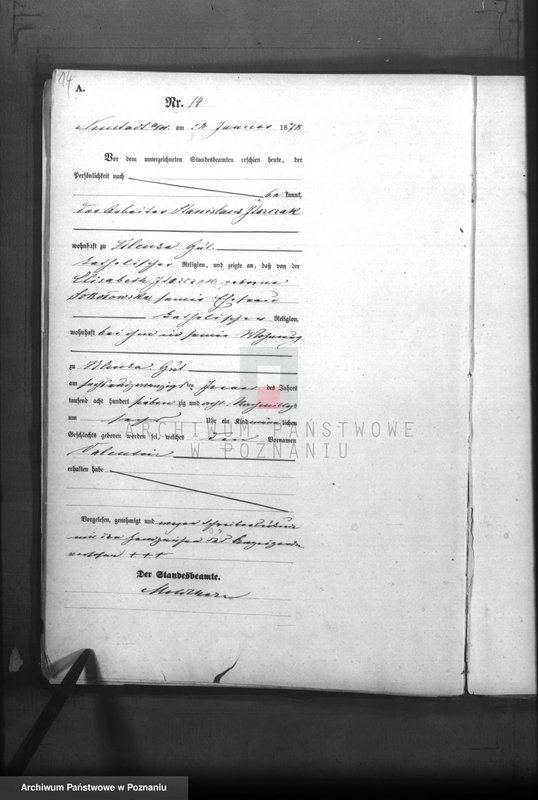 14
A.
Nr. 14
Neustadt am 28 Januar 1878
Vor dem unterzeichneten Standesbeamten erschien heute, der
Persönlichkeit nach
bekannt,
der Arbeiter Stanislaus
wohnhaft zu Gut
katholischer Religion, und zeigte an, daß von der
Elisabeth geborene
Sokolowska, seiner Ehefrau
katholischer Religion,
wohnhaft bei ihm in seiner Wohnung
zu Gut
am sechsundzwanzigsten Januar des Jahres
tausend acht hundert siebenzig und acht Nachmittags
um Uhr ein Kind männlichen
Geschlechts geboren worden sei, welches den Vornamen
Valentin
erhalten habe
Vorgelesen, genehmigt und wegen
mit den Handzeichen des Anzeigenden
versehen +++
Der Standesbeamte.
ARCHIWUM PAŃSTWOWE
W POZNANIU
Archiwum Państwowe w Poznaniu